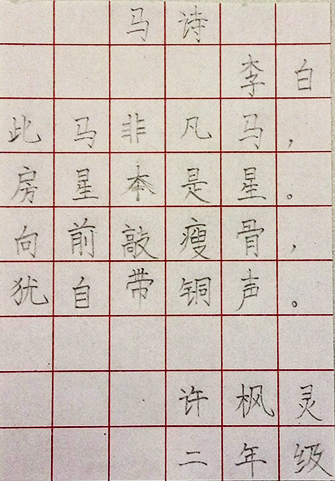 马诗
李白
此马非凡马，
房星本是星。
向前敲瘦骨，
犹自带铜声。
许枫灵
二年级